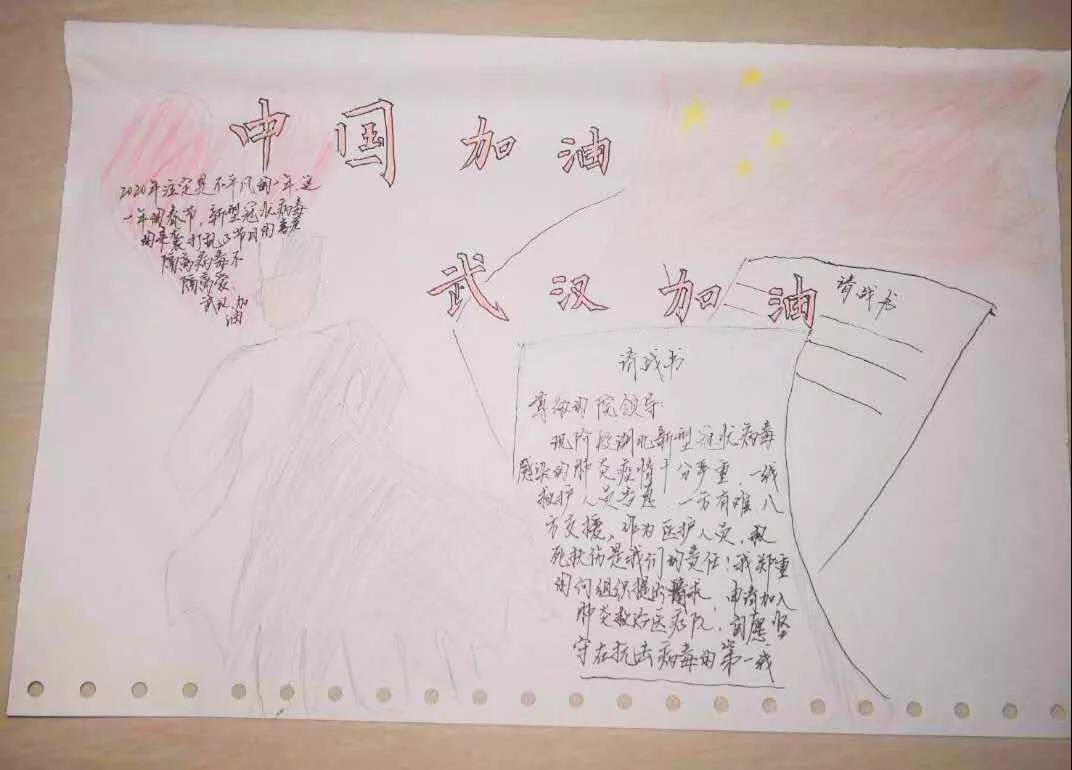 中国加油
2020年注定是不平凡的一年,这
一年的春节,新型冠状病毒
的来袭打乱了节日的喜庆
隔离病毒不
隔离爱
武汉加油
武汉加油
请战书
请战书
尊敬的院领导:
现阶段湖北新型冠状病毒
感染的肺炎疫情十分严重,一线
救护人员告急,一方有难,八
方支援,作为医护人员,救
死扶伤是我们的责任!我郑重
的向组织提出请求,申请加入
肺炎救治医疗队,自愿坚
守在抗击病毒的第一线